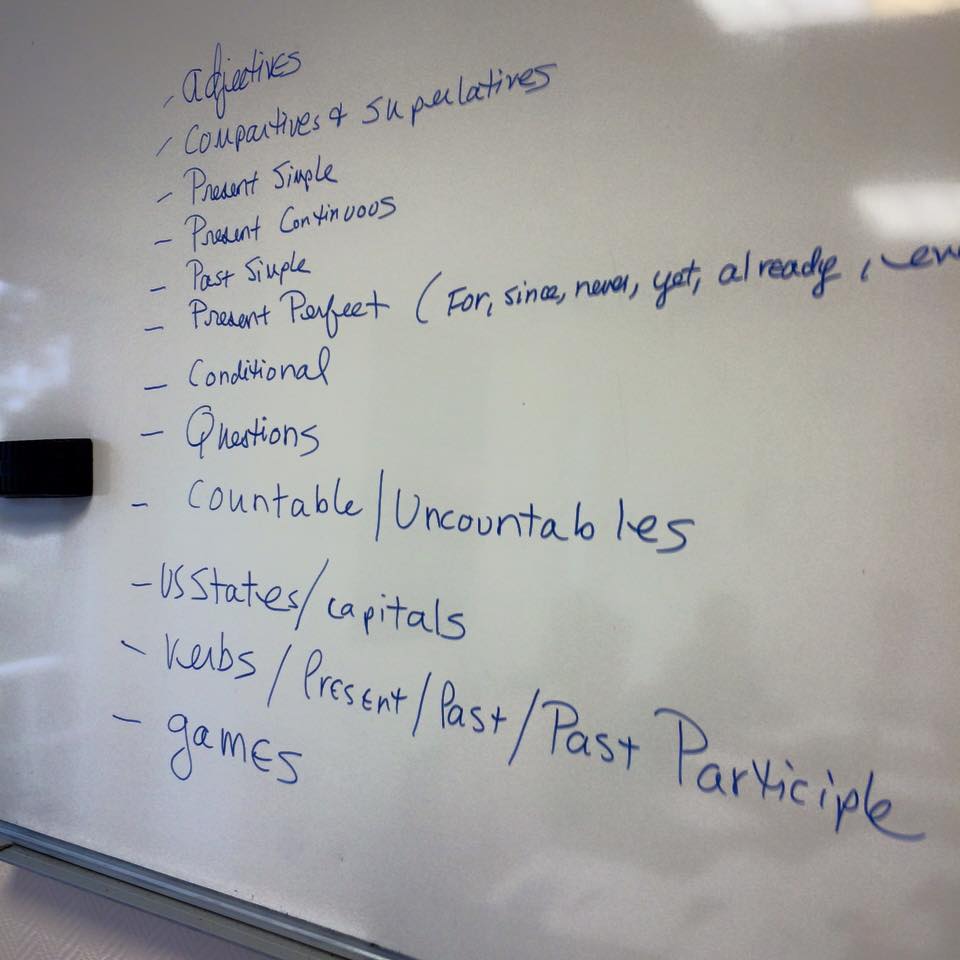 - adjectives
- Compartives & superlatives
- Present Simple
- Present Continuous
- Past Simple
- Present Perfect (For, since, never, yet, already,
- Conditional
- Questions
- Countable/Uncountables
- US States/capitals
- Verbs/Present/Past/Past Participle
- games